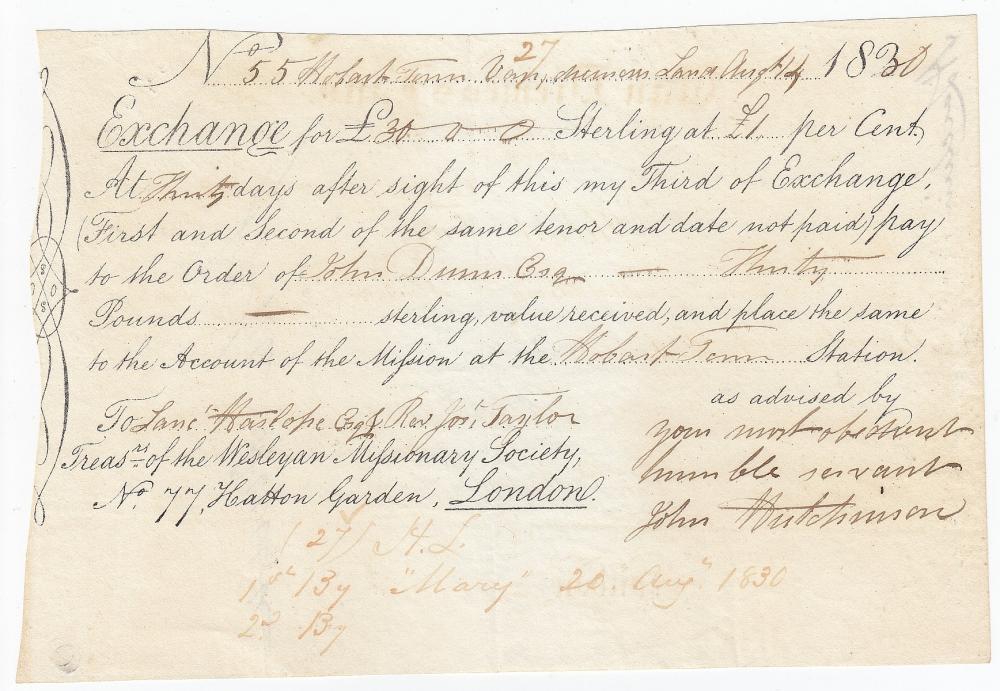 27
No 55 Hobart Town Van diemens Land Augt 14 1830
Exchange for £ 30 - 0 - 0 Sterling at £1 per Cent,
At Thirty days after sight of this my Third of Exchange,
(First and Second of the same tenor and date not paid) pay
to the Order of John Dunn Esq — Thirty
Pounds — sterling, value received, and place the same
to the Account of the Mission at the Hobart Town Station.
as advised by
your most obedient
humble servant
John Hutchinson
To Lanct Haslope Esq & Rev. Josh Taylor
Treasrs of the Wesleyan Missionary Society,
No. 77, Hatton Garden, London.
(27) H. L.
1st By "Mary" 20. Augt 1830
2d. By